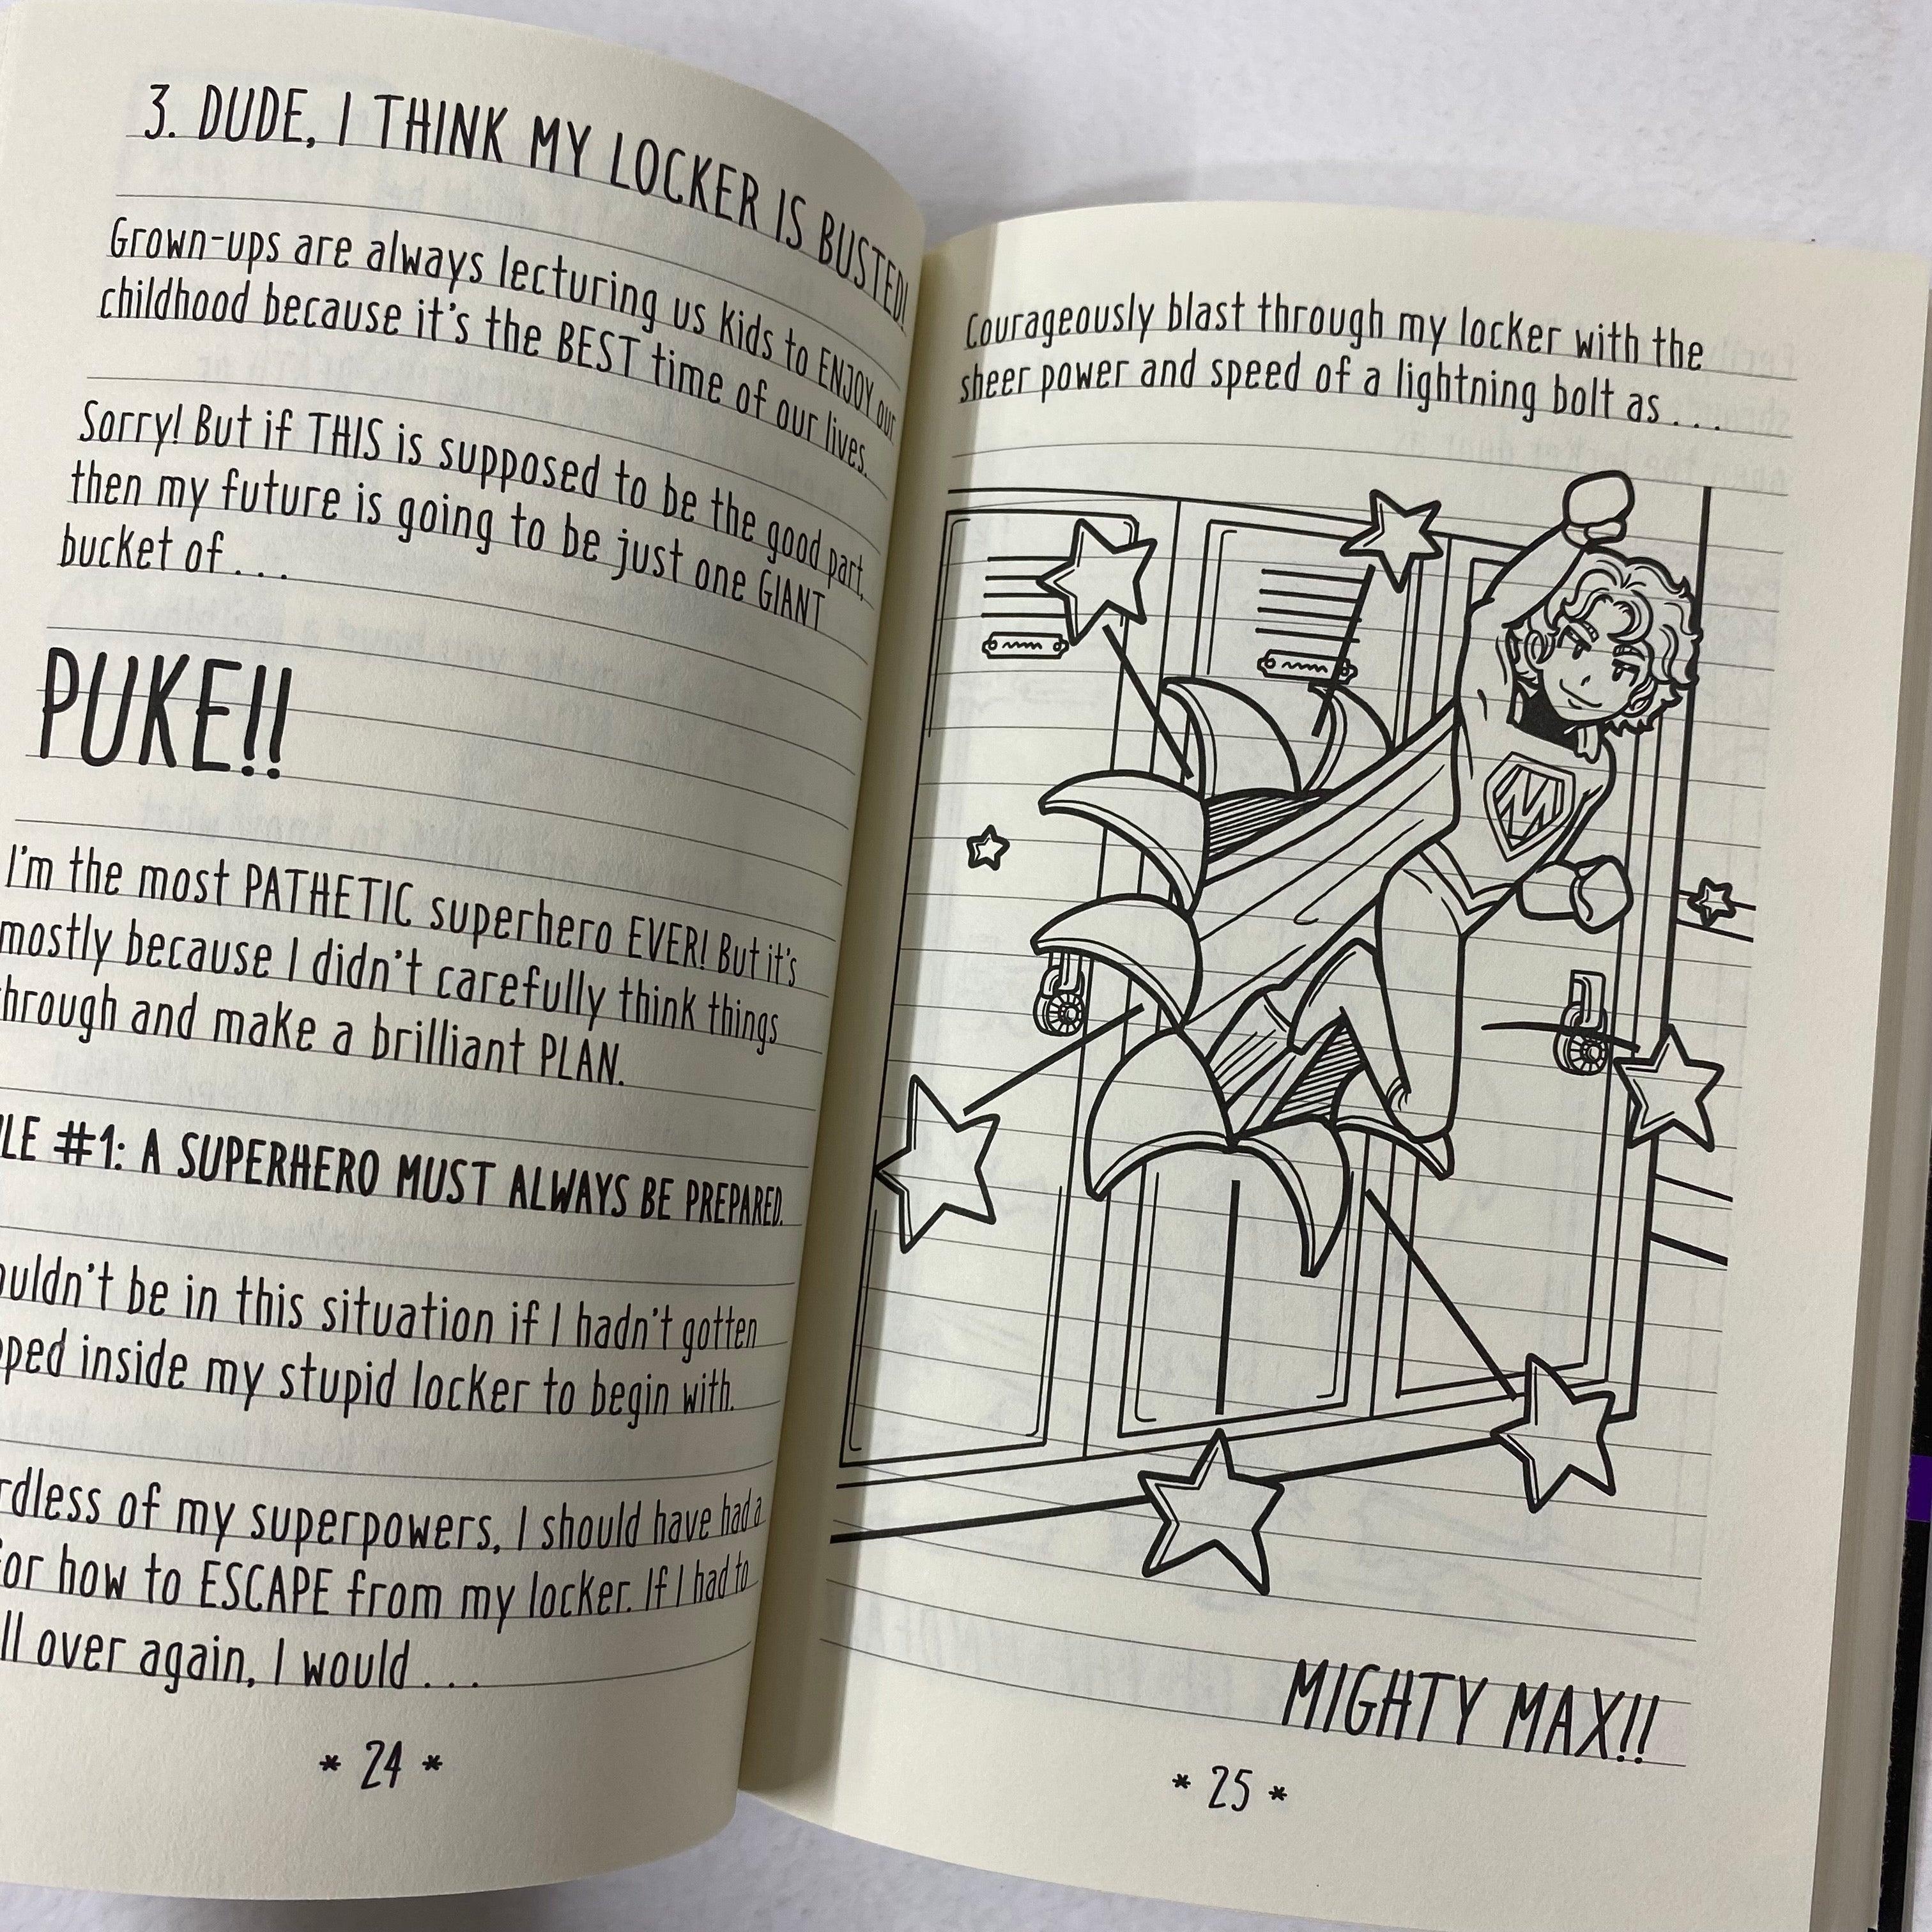 3. DUDE, I THINK MY LOCKER IS BUSTED!
Grown-ups are always lecturing us kids to ENJOY our
childhood because it's the BEST time of our lives.
Sorry! But if THIS is supposed to be the good part,
then my future is going to be just one GIANT
bucket of . . .
PUKE!!
I'm the most PATHETIC superhero EVER! But it's
mostly because I didn't carefully think things
through and make a brilliant PLAN.
#1: A SUPERHERO MUST ALWAYS BE PREPARED.
be in this situation if I hadn't gotten
inside my stupid locker to begin with.
of my superpowers, I should have had a
for how to ESCAPE from my locker. If I had to
over again, I would . . .
* 24 *
Courageously blast through my locker with the
sheer power and speed of a lightning bolt as . . .
M
MIGHTY MAX!!
* 25 *